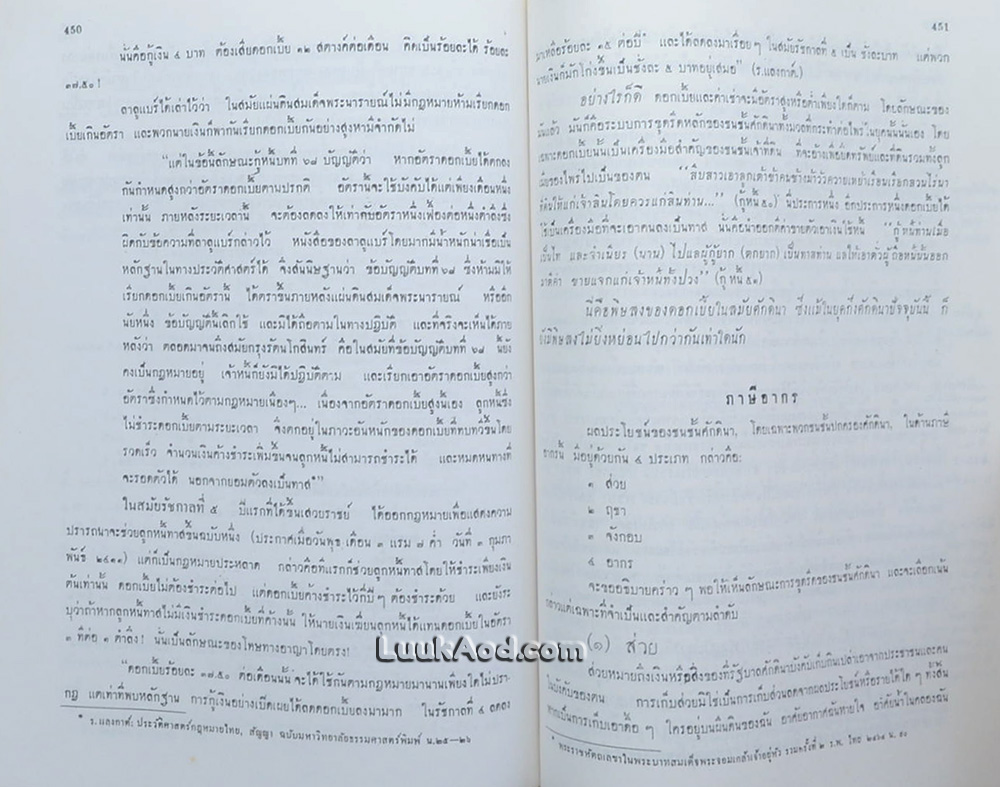 450
นั่นคือกู้เงิน ๔ บาท ต้องเสียดอกเบี้ย ๑๒ สตางค์ต่อเดือน คิดเป็นร้อยละได้ ร้อยละ
๓๗.๕๐!
ลาลูแบร์ได้เล่าไว้ว่า ในสมัยแผ่นดินสมเด็จพระนารายณ์ไม่มีกฎหมายห้ามเรียกดอก
เบี้ยเกินอัตรา และพวกนายเงินก็พากันเรียกดอกเบี้ยกันอย่างสูงหามีจำกัดไม่
"แต่ในข้อนี้ลักษณะกู้หนี้บทที่ ๖๘ บัญญัติว่า หากอัตราดอกเบี้ยได้ตกลง
กันกำหนดสูงกว่าอัตราดอกเบี้ยตามปรกติ อัตรานี้จะใช้บังคับได้แต่เพียงเดือนหนึ่ง
เท่านั้น ภายหลังระยะเวลานี้ จะต้องลดลงให้เท่ากับอัตราหนึ่งเฟื้องต่อหนึ่งตำลึงซึ่ง
ผิดกับข้อความที่ลาลูแบร์กล่าวไว้ หนังสือของลาลูแบร์โดยมากมีน้ำหนักน่าเชื่อเป็น
หลักฐานในทางประวัติศาสตร์ได้ จึงสันนิษฐานว่า ข้อบัญญัติบทที่ ๖๘ ซึ่งห้ามมิให้
เรียกดอกเบี้ยเกินอัตรานี้ ได้ตราขึ้นภายหลังแผ่นดินสมเด็จพระนารายณ์ หรืออีก
นัยหนึ่ง ข้อบัญญัตินี้เลิกใช้ และมิได้ถือตามในทางปฏิบัติ และที่จริงจะเห็นได้ภาย
หลังว่า ตลอดมาจนถึงสมัยกรุงรัตนโกสินทร์ คือในสมัยที่ข้อบัญญัติบทที่ ๖๘ นี้ยัง
คงเป็นกฎหมายอยู่ เจ้าหนี้ก็ยังมิได้ปฏิบัติตาม และเรียกเอาอัตราดอกเบี้ยสูงกว่า
อัตราซึ่งกำหนดไว้ตามกฎหมายเนืองๆ... เนื่องจากอัตราดอกเบี้ยสูงนี้เอง ลูกหนี้ซึ่ง
ไม่ชำระดอกเบี้ยตามระยะเวลา จึงตกอยู่ในภาวะอันหนักของดอกเบี้ยที่ทบทวีขึ้นโดย
รวดเร็ว จำนวนเงินค้างชำระเพิ่มขึ้นจนลูกหนี้ไม่สามารถชำระได้ และหมดหนทางที่
จะรอดตัวได้ นอกจากยอมตัวลงเป็นทาส*"
ในสมัยรัชกาลที่ ๕ ปีแรกที่ได้ขึ้นเสวยราชย์ ได้ออกกฎหมายเพื่อแสดงความ
ปรารถนาจะช่วยลูกหนี้ทาสขึ้นฉบับหนึ่ง (ประกาศเมื่อวันพุธ เดือน ๓ แรม ๗ ค่ำ วันที่ ๓ กุมภา
พันธ์ ๒๔๑๑) แต่ก็เป็นกฎหมายประหลาด กล่าวคือที่แรกก็ช่วยลูกหนี้ทาสโดยให้ชำระเพียงเงิน
ต้นเท่านั้น ดอกเบี้ยไม่ต้องชำระต่อไป แต่ดอกเบี้ยค้างชำระไว้กี่ปีๆ ต้องชำระด้วย และยังระ
บุว่าถ้าหากลูกหนี้ทาสไม่มีเงินชำระดอกเบี้ยที่ค้างนั้น ให้นายเงินเฆี่ยนลูกหนี้ได้แทนดอกเบี้ยในอัตรา
๓ ทีต่อ ๑ ตำลึง! นั่นเป็นลักษณะของโทษทางอาญาโดยตรง!
"ดอกเบี้ยร้อยละ ๓๗.๕๐ ต่อเดือนนั้นจะได้ใช้กันตามกฎหมายมานานเพียงใดไม่ปรา-
กฏ แต่เท่าที่พบหลักฐาน การกู้เงินอย่างเปิดเผยได้ลดดอกเบี้ยลงมามาก ในรัชกาลที่ ๔ ลดลง
* ร.แลงกาต์: ประวัติศาสตร์กฎหมายไทย, สัญญา ฉบับมหาวิทยาลัยธรรมศาสตร์พิมพ์ น.๒๕–๒๖
451
มาเหลือร้อยละ ๑๕ ต่อปี* และได้ลดลงมาเรื่อยๆ ในสมัยรัชกาลที่ ๕ เป็น ชั่งละบาท แต่พวก
นายเงินก็มักโกงขึ้นเป็นชั่งละ ๕ บาทอยู่เสมอ" (ร.แลงกาต์.)
อย่างไรก็ดี ดอกเบี้ยและค่าเช่าจะมีอัตราสูงหรือต่ำเพียงใดก็ตาม โดยลักษณะของ
มันแล้ว มันก็คือระบบการขูดรีดหลักของชนชั้นศักดินาทั้งมวลที่กระทำต่อไพร่ในยุคนั้นนั่นเอง โดย
เฉพาะดอกเบี้ยนั้นเป็นเครื่องมือสำคัญของชนชั้นเจ้าที่ดิน ที่จะอ้างเพื่อยึดทรัพย์และที่ดินรวมทั้งลูก
เมียของไพร่ไปเป็นของตน
(กู้หนี้ ๕๐) นี่ประการหนึ่ง อีกประการหนึ่งดอกเบี้ยได้
ใช้เป็นเครื่องมือที่จะเอาคนลงเป็นทาส
ขายแจกแก่เจ้าหนี้ทั้งปวง" (กู้หนี้ ๕๑)
นี่คือพิษสงของดอกเบี้ยในสมัยศักดินา ซึ่งแม้ในยุคกึ่งศักดินาปัจจุบันนี้ ก็
ยังมีพิษสงไม่ยิ่งหย่อนไปกว่ากันเท่าใดนัก
ภาษีอากร
ผลประโยชน์ของชนชั้นศักดินา, โดยเฉพาะพวกชนชั้นปกครองศักดินา, ในด้านภาษี
อากรนั้น มีอยู่ด้วยกัน ๔ ประเภท กล่าวคือ:
๑ ส่วย
๒ ฤชา
๓ จังกอบ
๔ อากร
จะขออธิบายคร่าว ๆ พอให้เห็นลักษณะการขูดรีดของชนชั้นศักดินา และจะเลือกเน้น
กล่าวแต่เฉพาะที่จำเป็นและสำคัญตามลำดับ
(๑) ส่วย
ส่วยหมายถึงเงินหรือสิ่งของที่รัฐบาลศักดินาบังคับเก็บกินเปล่าเอาจากประชาชนและคน
ในบังคับของตน การเก็บส่วยมิใช่เป็นการเก็บส่วนลดจากผลประโยชน์หรือรายได้ใดๆ ทั้งสิ้น
หากเป็นการเก็บเอาดื้อ ๆ ใครอยู่บนผืนดินของฉัน อาศัยอากาศฉันหายใจ อาศัยน้ำในคลองฉัน
* พระราชหัตถเลขาในพระบาทสมเด็จพระจอมเกล้าเจ้าอยู่หัว รวมครั้งที่ ๒
LuukAod.com